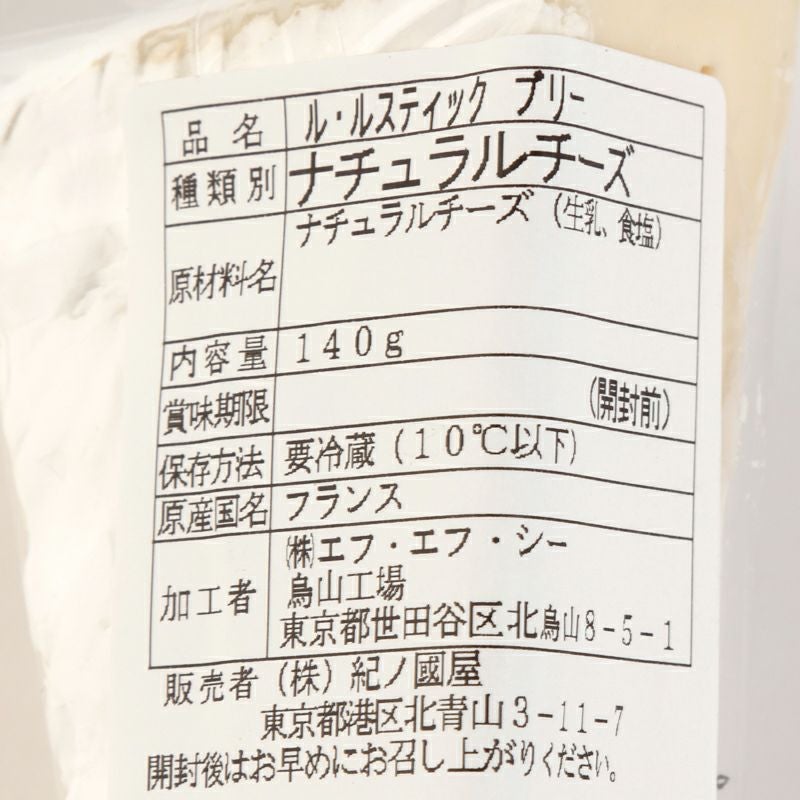 品名 ル・ルスティック ブリー
種類別 ナチュラルチーズ
原材料名 ナチュラルチーズ（生乳、食塩）
内容量 140g
賞味期限 (開封前)
保存方法 要冷蔵(10℃以下)
原産国名 フランス
加工者 ㈱エフ・エフ・シー
烏山工場
東京都世田谷区北烏山8-5-1
販売者 (株)紀ノ國屋
東京都港区北青山3-11-7
開封後はお早めにお召し上がりください。